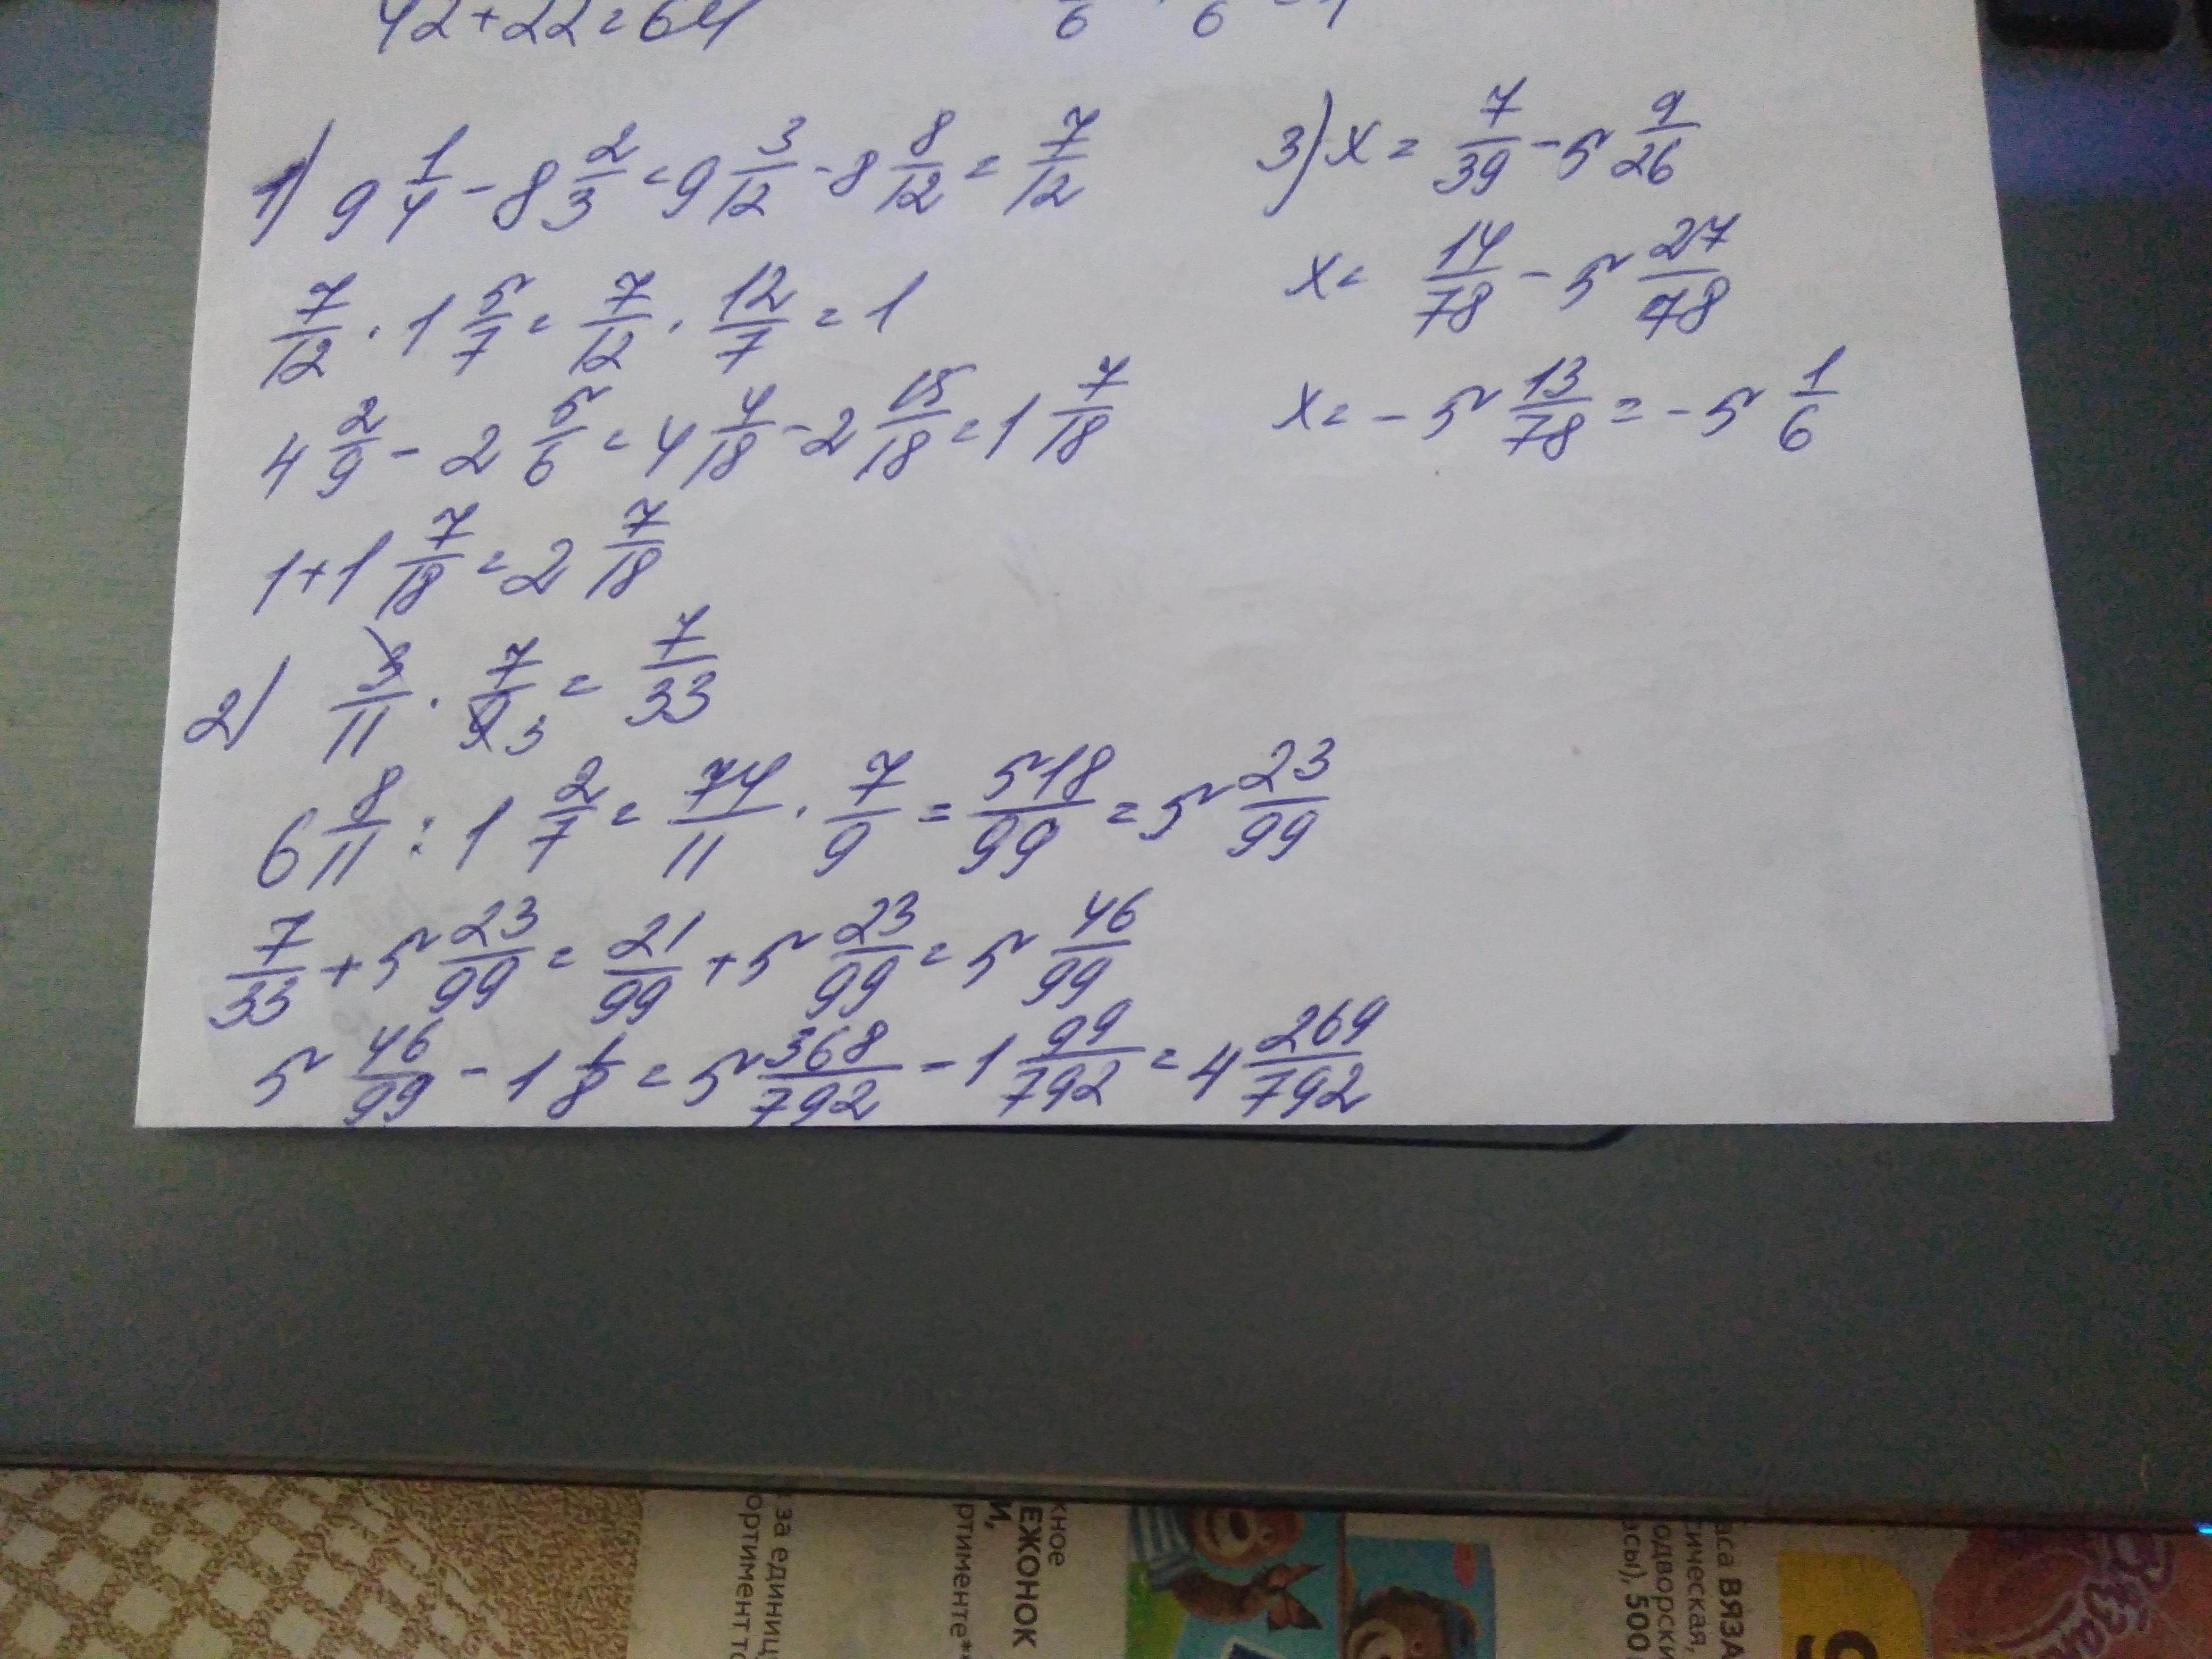 42+22=64
1) 9 1/4 - 8 2/3 = 9 3/12 - 8 8/12 = 7/12
7/12 · 1 5/7 = 7/12 · 12/7 = 1
4 2/9 - 2 5/6 = 4 4/18 - 2 15/18 = 1 7/18
1+1 7/18 = 2 7/18
2) 3/11 · 7/9 3 = 7/33
6 8/11 : 1 2/7 = 74/11 · 7/9 = 518/99 = 5 23/99
7/33 + 5 23/99 = 21/99 + 5 23/99 = 5 46/99
5 46/99 - 1 1/8 = 5 368/792 - 1 99/792 = 4 269/792
3) x = 7/39 - 5 9/26
x = 14/78 - 5 27/78
x = - 5 13/78 = - 5 1/6
за единиц
ортимент т
жное
ЕЖОНОК
И,
ртименте**
аса ВЯЗА
сическая,
одворски
асы), 500
9
Вязан